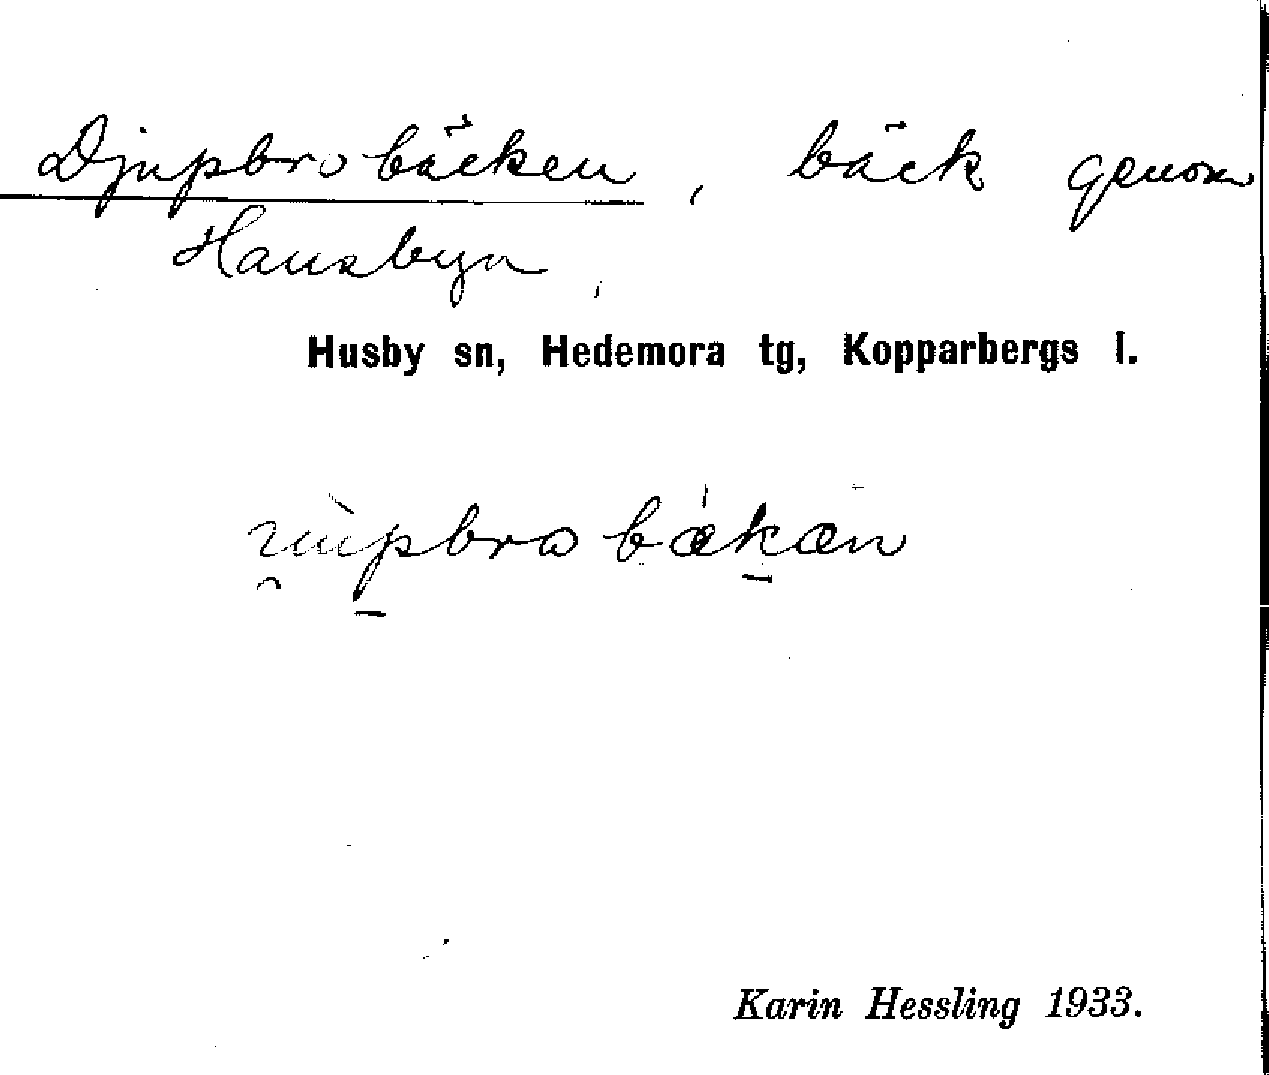 Djupbrobäcken, bäck genom
Hansbyn
Husby sn, Hedemora tg, Kopparbergs l.
Karin Hessling 1933.